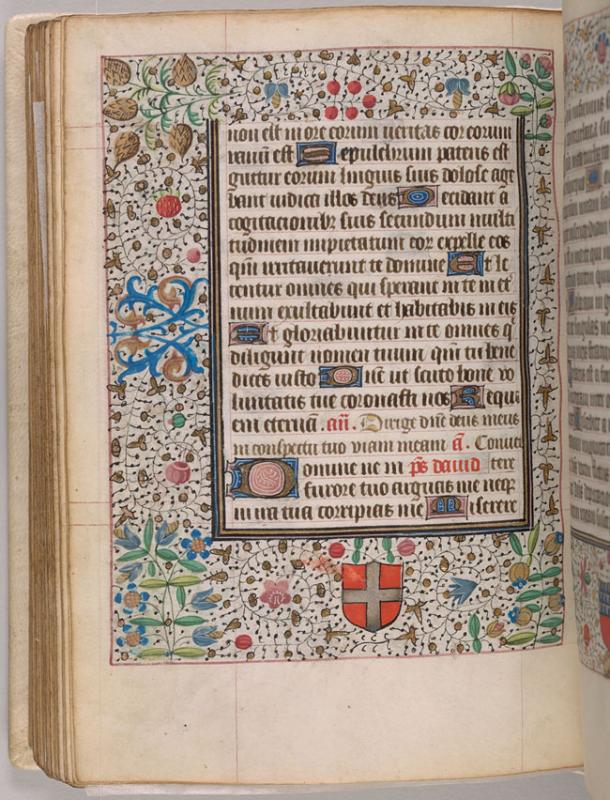 non est in ore eorum veritas cor eorum
vanū est Sepulchrum patens est
guttur eorum linguis suis dolose age
bant iudica illos deus Decidant a
cogitacionibꝫ suis secundum multi
tudinem impietatum eoꝝ expelle eos
qm̄ irritaverunt te domine Et le
tentur omnes qui sperant in te in et
num exultabunt et habitabis in eis
Et gloriabuntur in te omnes q̇
diligunt nomen tuum qm̄ tu bene
dices iusto Dn̄e ut scuto bone vo
luntatis tue coronasti nos Requi
em eternā. an̄. Dirige dn̄e deus meus
in conspectu tuo viam meam a᷑. Convert
Domine ne in p̄s david tere
furore tuo arguas me neqꝫ
in ira tua corripias me Miserere